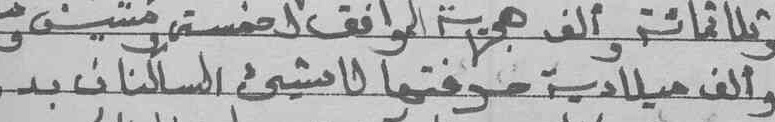 وثلاثمائة وألف هجرية الموافق لخمسة وستين و
وألف ميلادية حرفتها لا شيئ السالنان بد